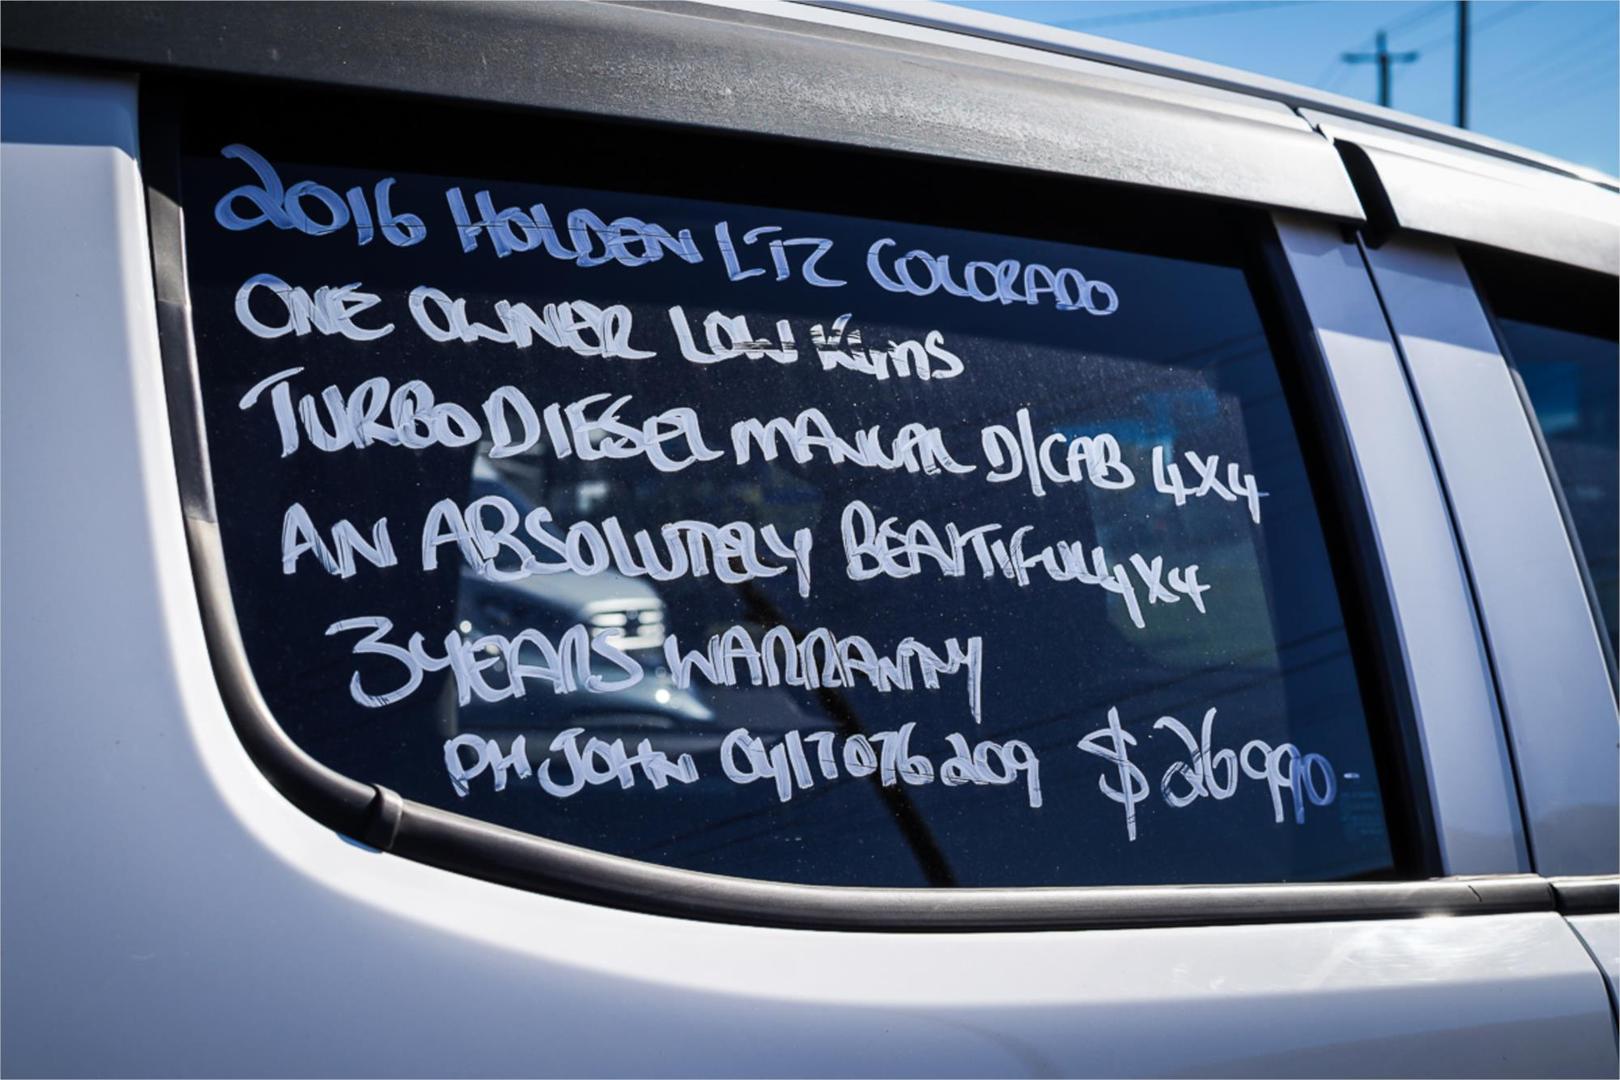 2016 HOLDEN LTZ COLORADO
ONE OWNER LOW KLMS
TURBO DIESEL MANUAL D/CAB 4X4
AN ABSOLUTELY BEAUTIFULL 4X4
3 YEARS WARRANTY
PH JOHN 0417 076 209 $26990-